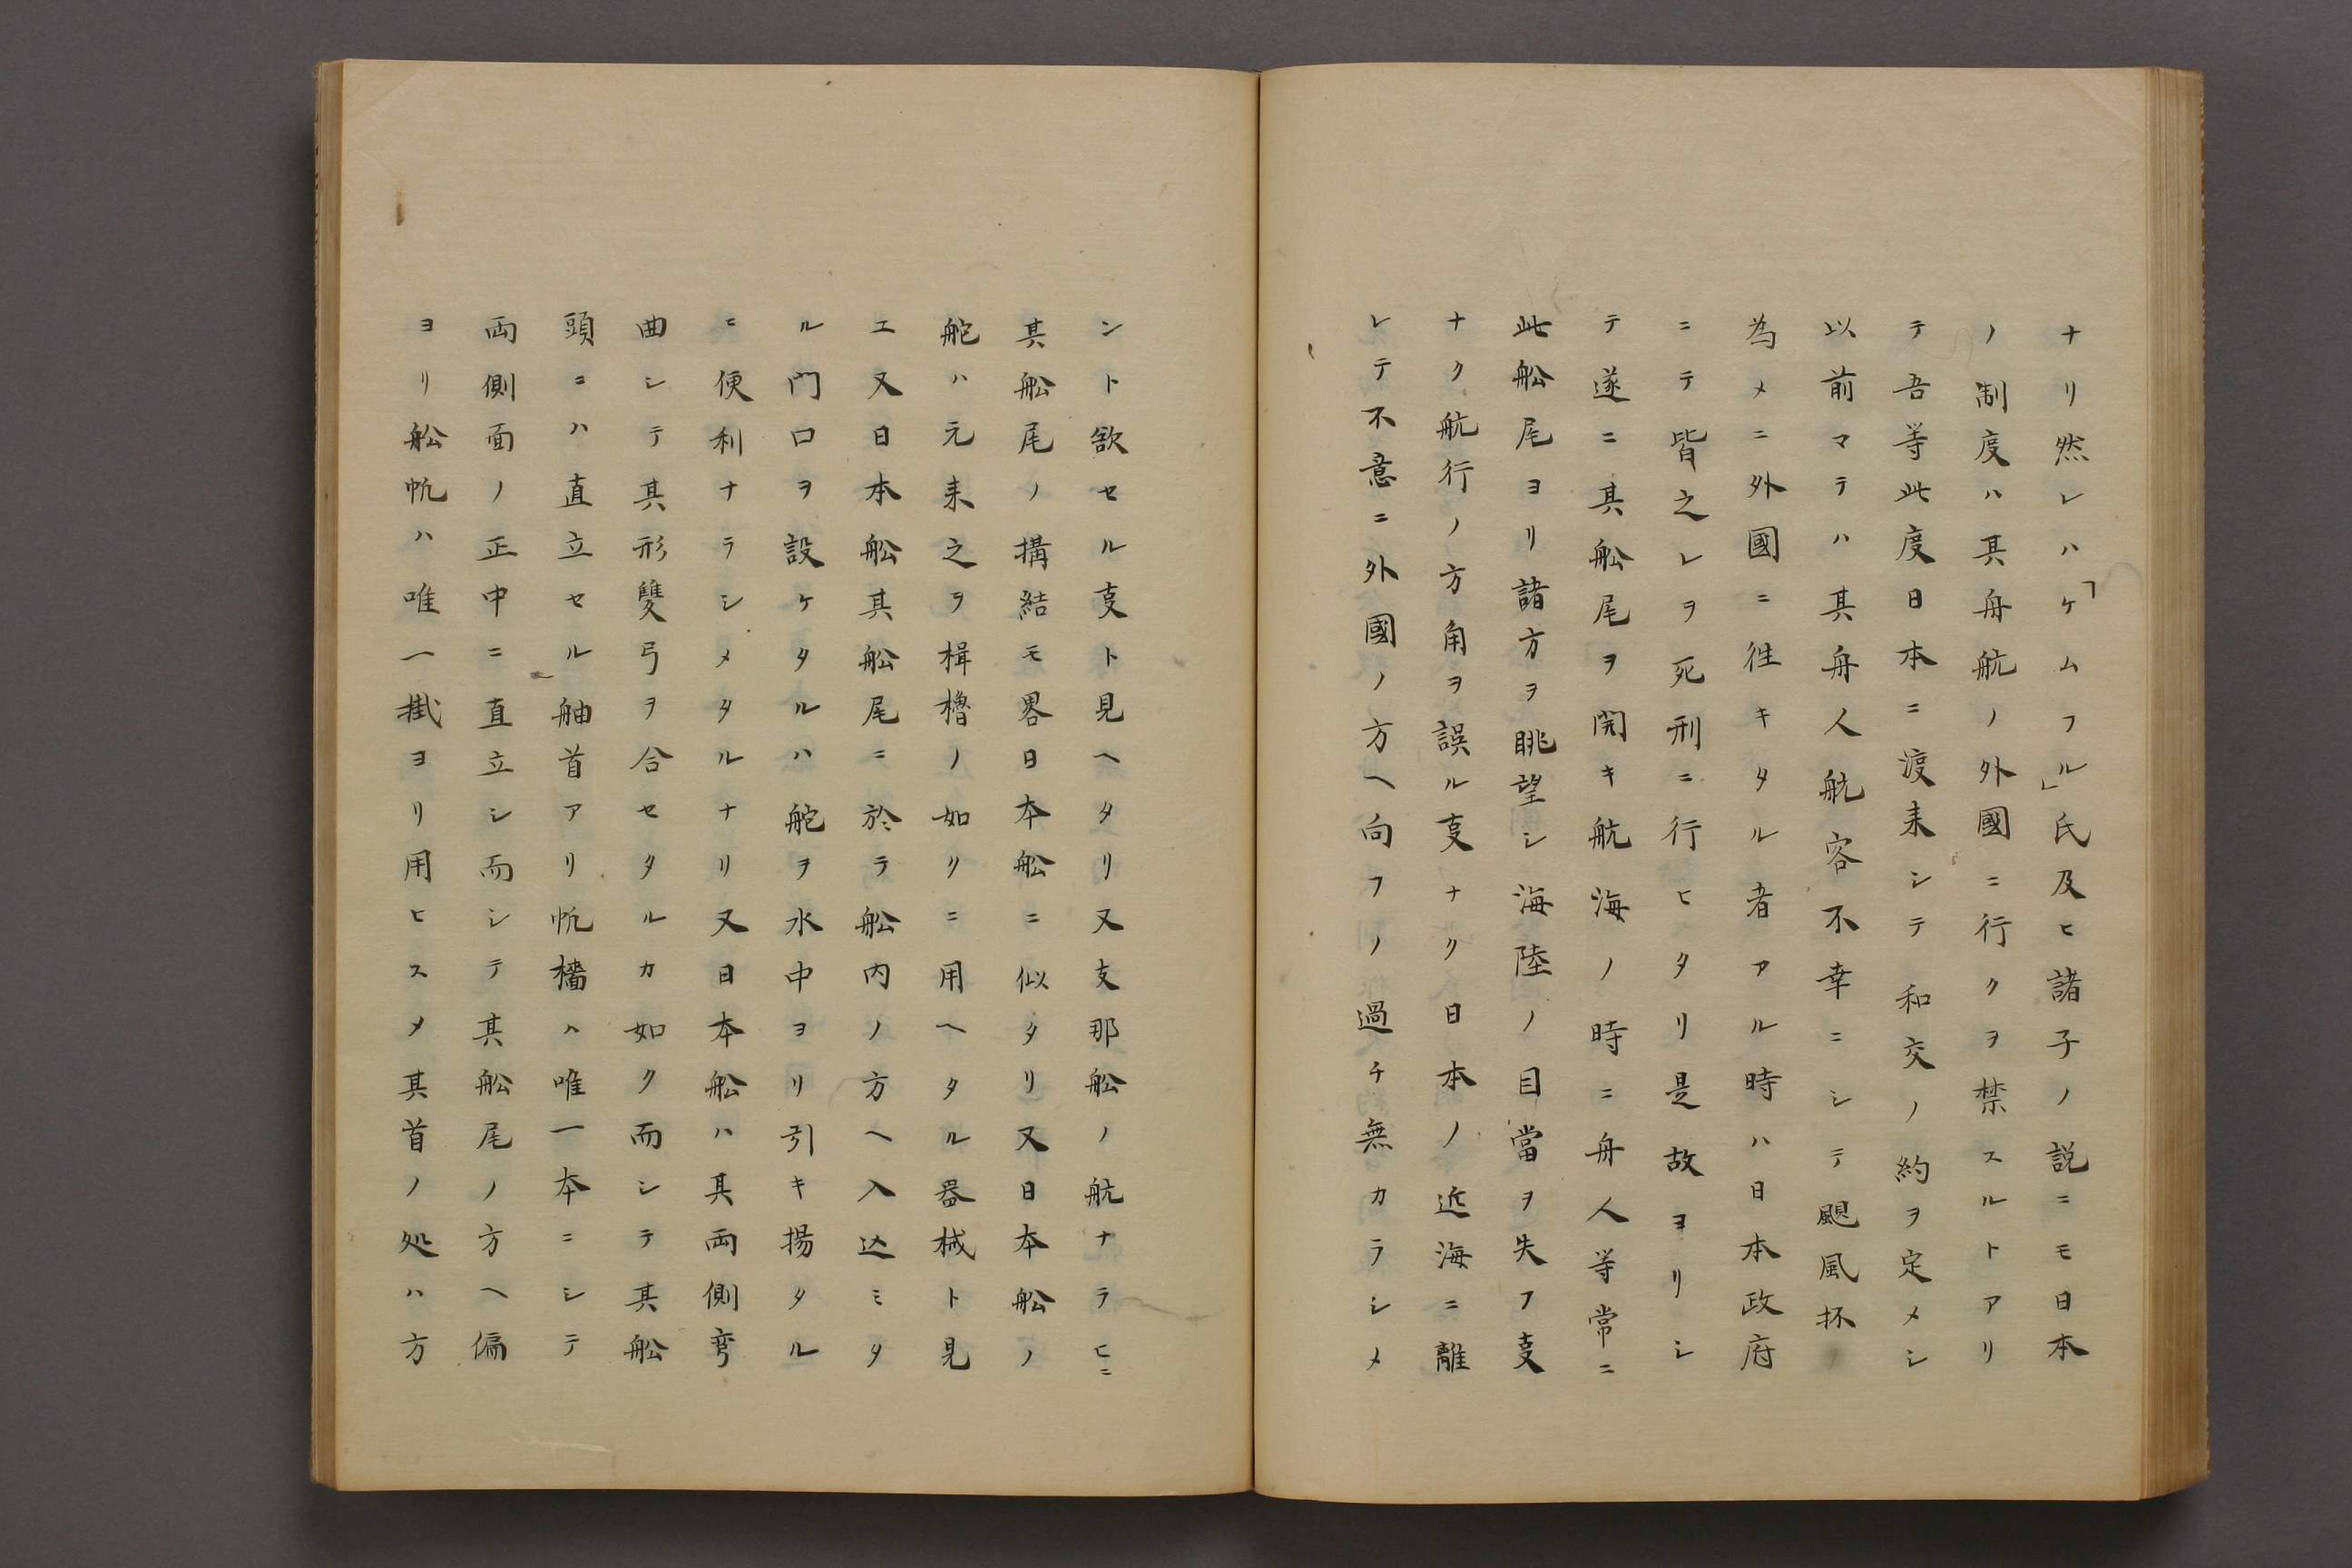 ナリ然レハ「ケムフル」氏及ヒ諸子ノ説ニモ日本
ノ制度ハ其舟航ノ外國ニ行クヲ禁スルトアリ
テ吾等此度日本ニ渡来シテ和交ノ約ヲ定メシ
以前マテハ其舟人航客不幸ニシテ颶風抔ノ
為メニ外國ニ徃キタル者アル時ハ日本政府
ニテ皆之レヲ死刑ニ行ヒタリ是故ヨリシ
テ遂ニ其舩尾ヲ開キ航海ノ時ニ舟人等常ニ
此舩尾ヨリ諸方ヲ眺望シ海陸ノ目當ヲ失フ㕝
ナク航行ノ方角ヲ誤ル㕝ナク日本ノ近海ニ離
レテ不意ニ外國ノ方ヘ向フノ過チ無カラシメ
ント欲セル㕝ト見ヘタリ又支那舩ノ航ナラヒニ
其舩尾ノ構結モ畧日本舩ニ似タリ又日本舩ノ
舵ハ元来之ヲ楫櫓ノ如クニ用ヘタル器械ト見
エ又日本舩其舩尾ニ於テ舩内ノ方ヘ入込ミタ
ル門口ヲ設ケタルハ舵ヲ水中ヨリ引キ揚タル
ニ便利ナラシメタルナリ又日本舩ハ其両側弯
曲シテ其形雙弓ヲ合セタルカ如ク而シテ其舩
頭ニハ直立セル舳首アリ帆檣ハ唯一本ニシテ
両側面ノ正中ニ直立シ而シテ其舩尾ノ方ヘ偏
ヨリ舩帆ハ唯一掛ヨリ用ヒスメ其首ノ処ハ方